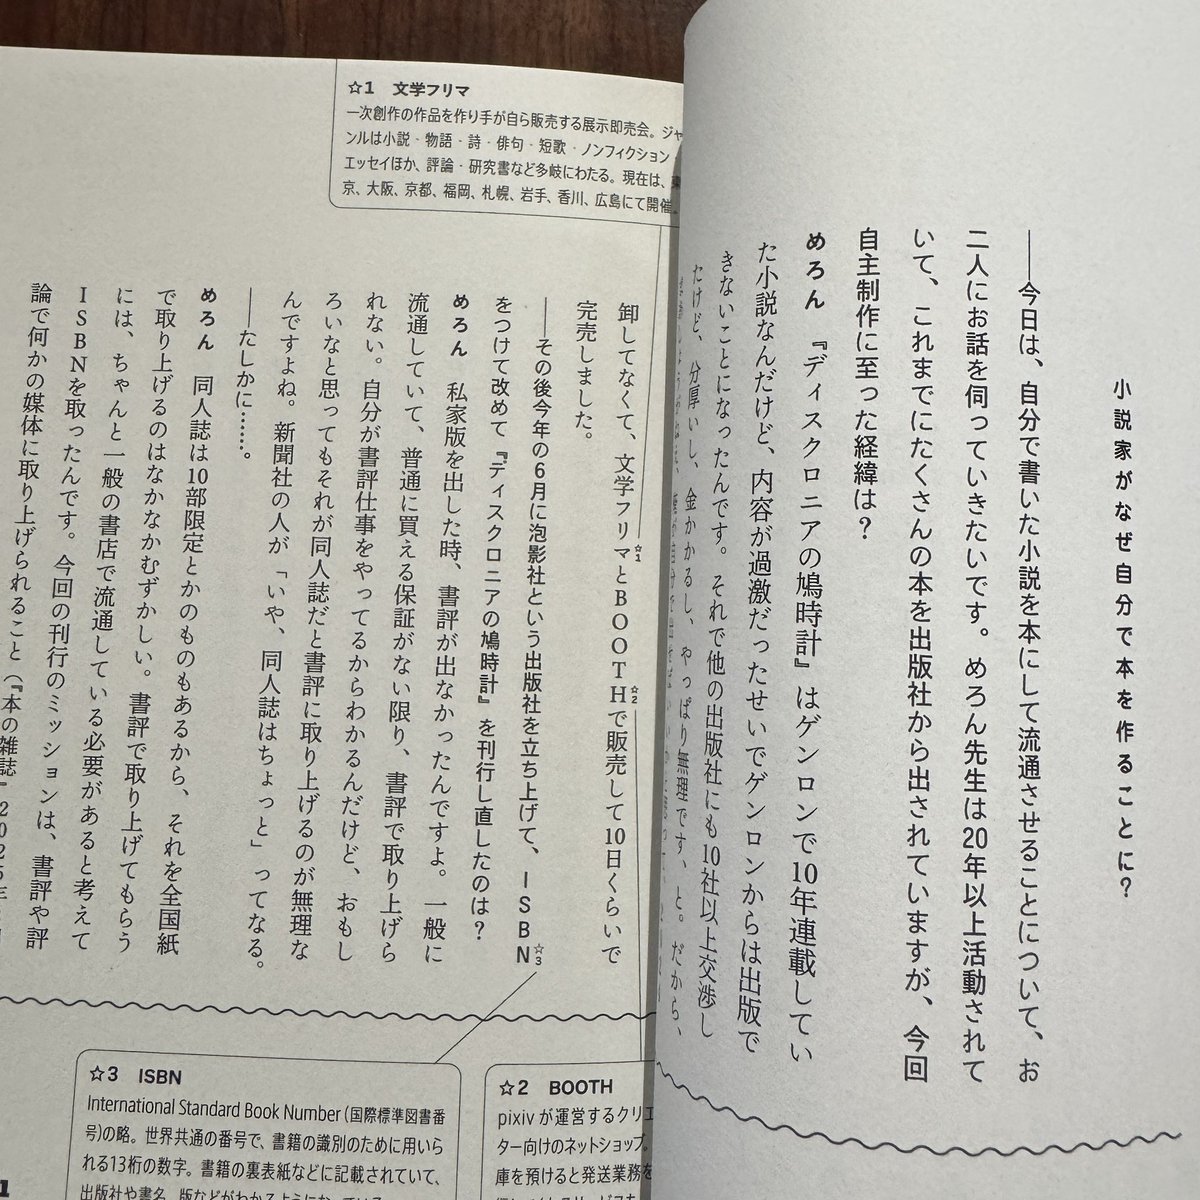 小説家がなぜ自分で本を作ることに？
――今日は、自分で書いた小説を本にして流通させることについて、お
二人にお話を伺っていきたいです。めろん先生は20年以上活動されて
いて、これまでにたくさんの本を出版社から出されていますが、今回
自主制作に至った経緯は？
めろん　『ディスクロニアの鳩時計』はゲンロンで10年連載してい
た小説なんだけど、内容が過激だったせいでゲンロンからは出版で
きないことになったんです。それで他の出版社にも10社以上交渉し
たけど、分厚いし、金かかるし、やっぱり無理です、と。だから、
☆1　文学フリマ
一次創作の作品を作り手が自ら販売する展示即売会。ジャ
ンルは小説・物語・詩・俳句・短歌・ノンフィクション・
エッセイほか、評論・研究書など多岐にわたる。現在は、東
京、大阪、京都、福岡、札幌、岩手、香川、広島にて開催
卸してなくて、文学フリマ☆1とBOOTH☆2で販売して10日くらいで
完売しました。
――その後今年の6月に泡影社という出版社を立ち上げて、ISBN☆3
をつけて改めて『ディスクロニアの鳩時計』を刊行し直したのは？
めろん　私家版を出した時、書評が出なかったんですよ。一般に
流通していて、普通に買える保証がない限り、書評で取り上げら
れない。自分が書評仕事をやってるからわかるんだけど、おもし
ろいなと思ってもそれが同人誌だと書評に取り上げるのが無理な
んですよね。新聞社の人が「いや、同人誌はちょっと」ってなる。
――たしかに……。
めろん　同人誌は10部限定とかのものもあるから、それを全国紙
で取り上げるのはなかなかむずかしい。書評で取り上げてもらう
には、ちゃんと一般の書店で流通している必要があると考えて
ISBNを取ったんです。今回の刊行のミッションは、書評や評
論で何かの媒体に取り上げられること（『本の雑誌』2025年
☆3　ISBN
International Standard Book Number（国際標準図書番
号）の略。世界共通の番号で、書籍の識別のために用いら
れる13桁の数字。書籍の裏表紙などに記載されていて、
出版社や書名、版などがわかるようになっている
☆2　BOOTH
pixivが運営するクリエ
ター向けのネットショップ。
庫を預けると発送業務を